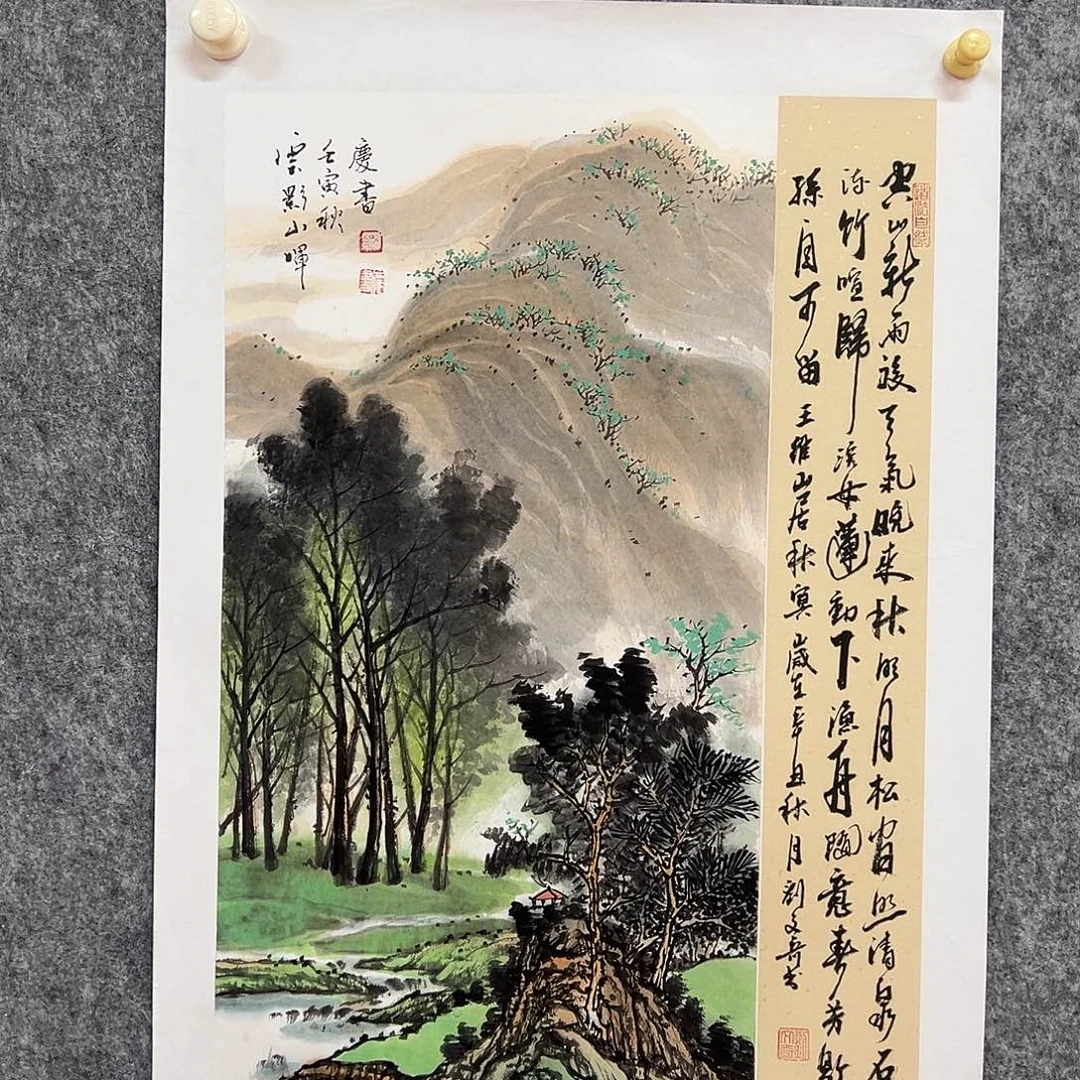 雲影山暉
壬寅秋
慶書
空山新雨後天氣晚來秋明月松間照清泉石
流竹喧歸浣女蓮動下漁舟隨意春芳歇
孫自可留 王維山居秋冥 歲在辛丑秋月劉文奇書